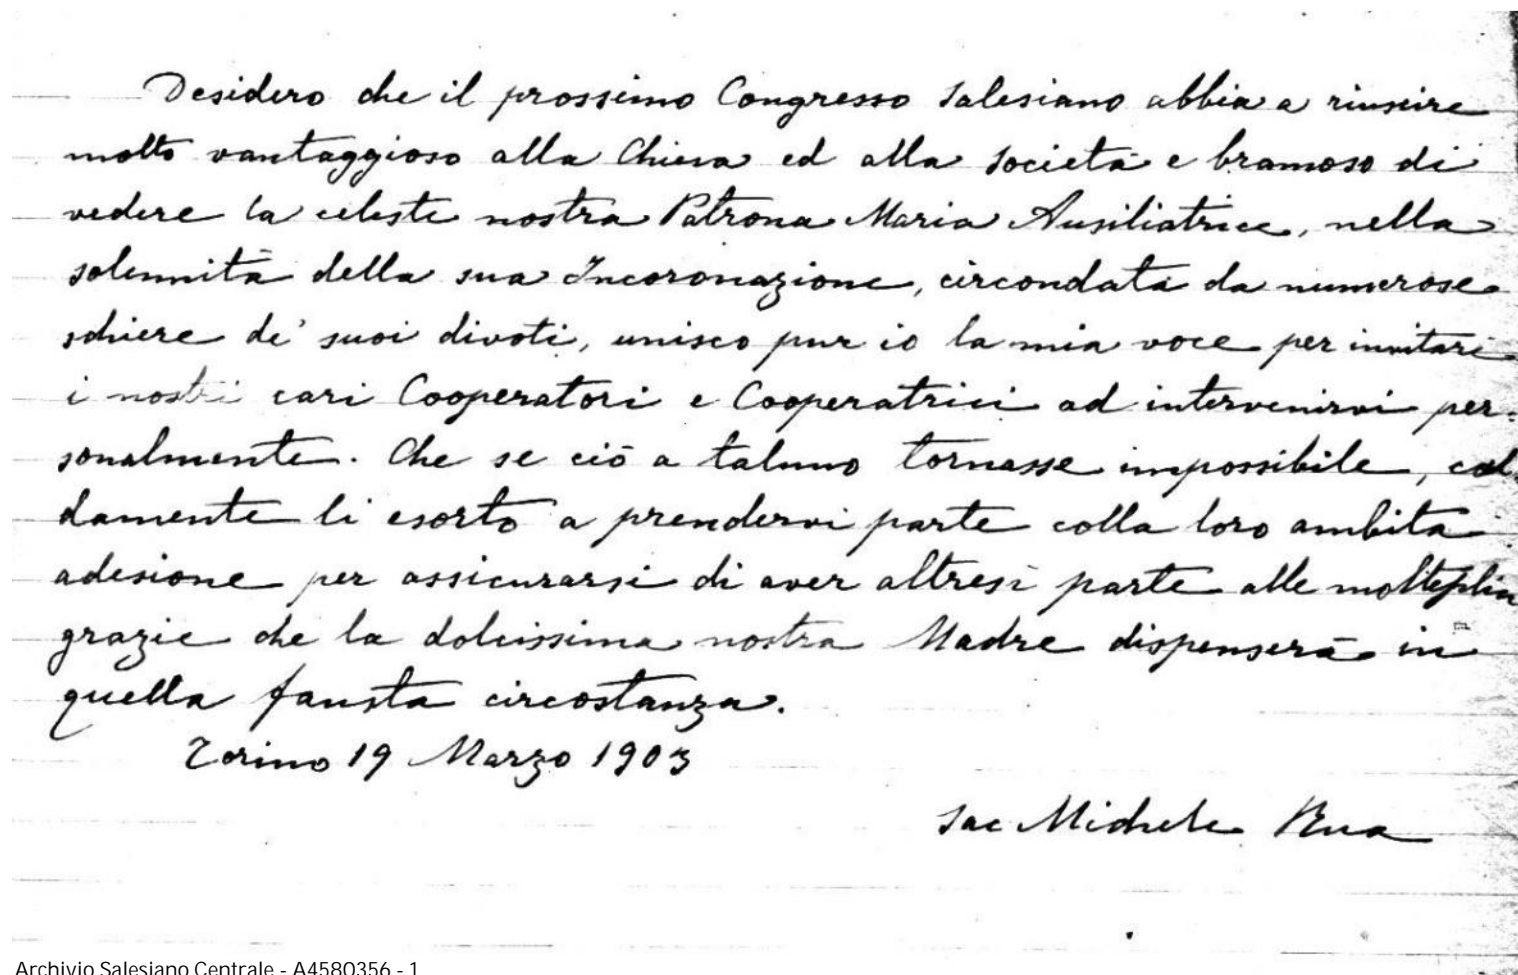 Desidero che il prossimo Congresso Salesiano abbia a riuscire
molto vantaggioso alla Chiesa ed alla Società e bramoso di
vedere la celeste nostra Patrona Maria Ausiliatrice, nella
solennità della sua Incoronazione, circondata da numerose
schiere de' suoi divoti, unisco pur io la mia voce per invitare
i nostri cari Cooperatori e Cooperatrici ad intervenirvi per=
sonalmente. Che se ciò a taluno tornasse impossibile, cal
damente li esorto a prendervi parte colla loro ambita
adesione per assicurarsi di aver altresì parte alle molteplici
grazie che la dolcissima nostra Madre dispenserà in
quella fausta circostanza.
Torino 19 Marzo 1903
Sac Michele Rua
Archivio Salesiano Centrale - A4580356 - 1